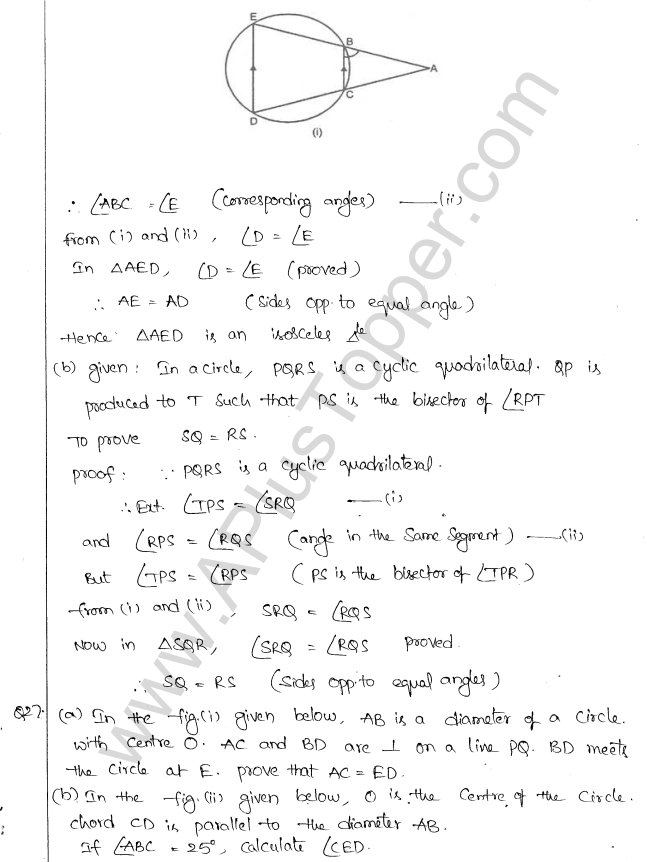 E
B
A
C
D
(i)
∴ ∠ABC = ∠E (corresponding angles) —(ii)
from (i) and (ii), ∠D = ∠E
In △AED, ∠D = ∠E (proved)
∴ AE = AD (Sides opp. to equal angle)
Hence △AED is an isosceles △le
(b) given: In a circle, PQRS is a cyclic quadrilateral. QP is
produced to T such that PS is the bisector of ∠RPT
To prove SQ = RS.
proof: ∵ PQRS is a cyclic quadrilateral.
∴ Ext. ∠TPS = ∠SRQ —(i)
and ∠RPS = ∠RQS (angle in the Same Segment) —(ii)
But ∠TPS = ∠RPS (PS is the bisector of ∠TPR)
from (i) and (ii), SRQ = ∠RQS
Now in △SQR, ∠SRQ = ∠RQS proved.
∴ SQ = RS (Sides opp. to equal angles)
Q27. (a) In the fig.(i) given below, AB is a diameter of a circle.
with centre O. AC and BD are ⊥ on a line PQ. BD meets
the circle at E. prove that AC = ED.
(b) In the fig.(ii) given below, O is the Centre of the circle.
chord CD is parallel to the diameter AB.
If ∠ABC = 25°, calculate ∠CED.
www.APlusTopper.com